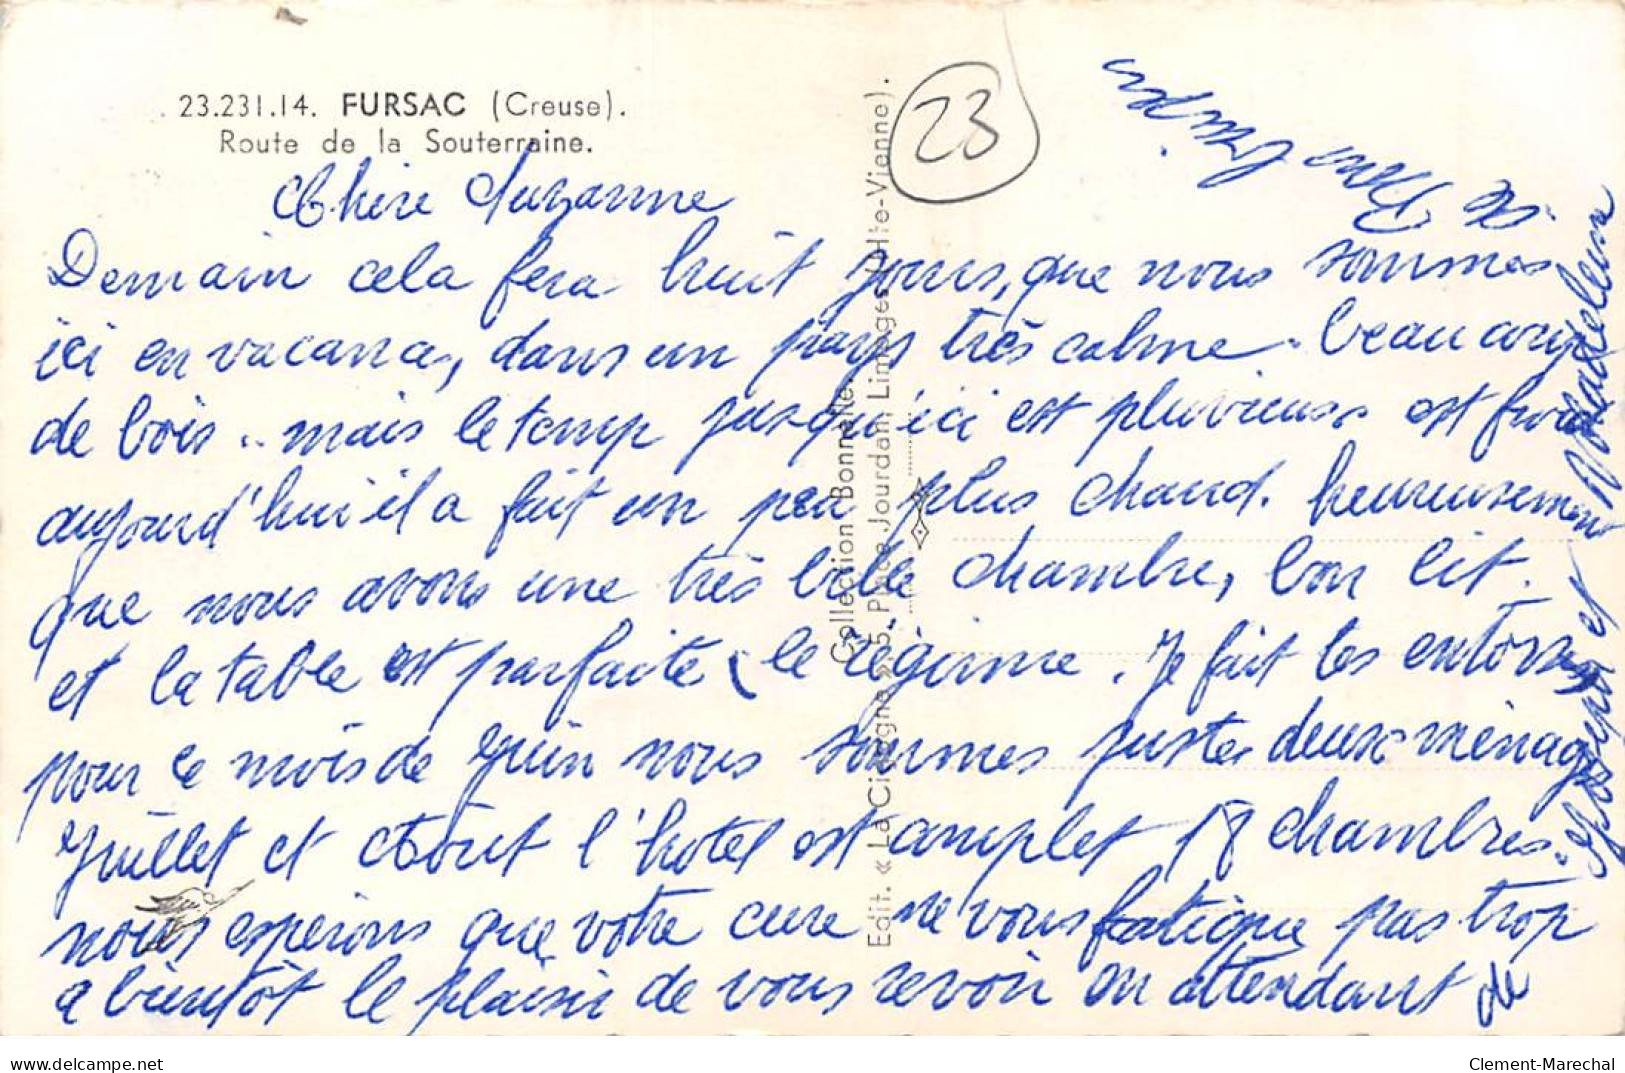 23.231.14. FURSAC (Creuse).
Route de la Souterraine.
23
Chère Suzanne
Demain cela fera huit jours, que nous sommes
ici en vacance, dans un pays très calme. beaucoup
de bois.. mais le temp jusqu'ici est pluvieux est froid
aujourd'hui il a fait un peu plus chaud. heureusement
que nous avons une très belle chambre, bon lit.
et la table est parfaite le régime. Je fait les entorses
pour ce mois de Juin nous sommes juste deux ménages
Juillet et Aout l'hotel est complet 18 chambres.
nous espérons que votre cure ne vous fatigue pas trop
a bientôt le plaisir de vous revoir en attendant de
Joseph et Madeleine
Collection Bonnette.
Edit. « La Cigogne », 5, Place Jourdan, Limoges (Hte-Vienne).
delcampe.net
Clement-Marechal